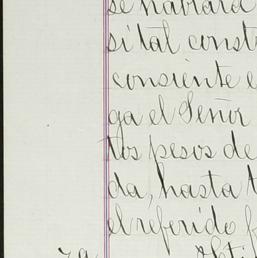 se habrara
sital const
consiente e
ga el Señor
tos pesos de
da, hasta t
el referido f